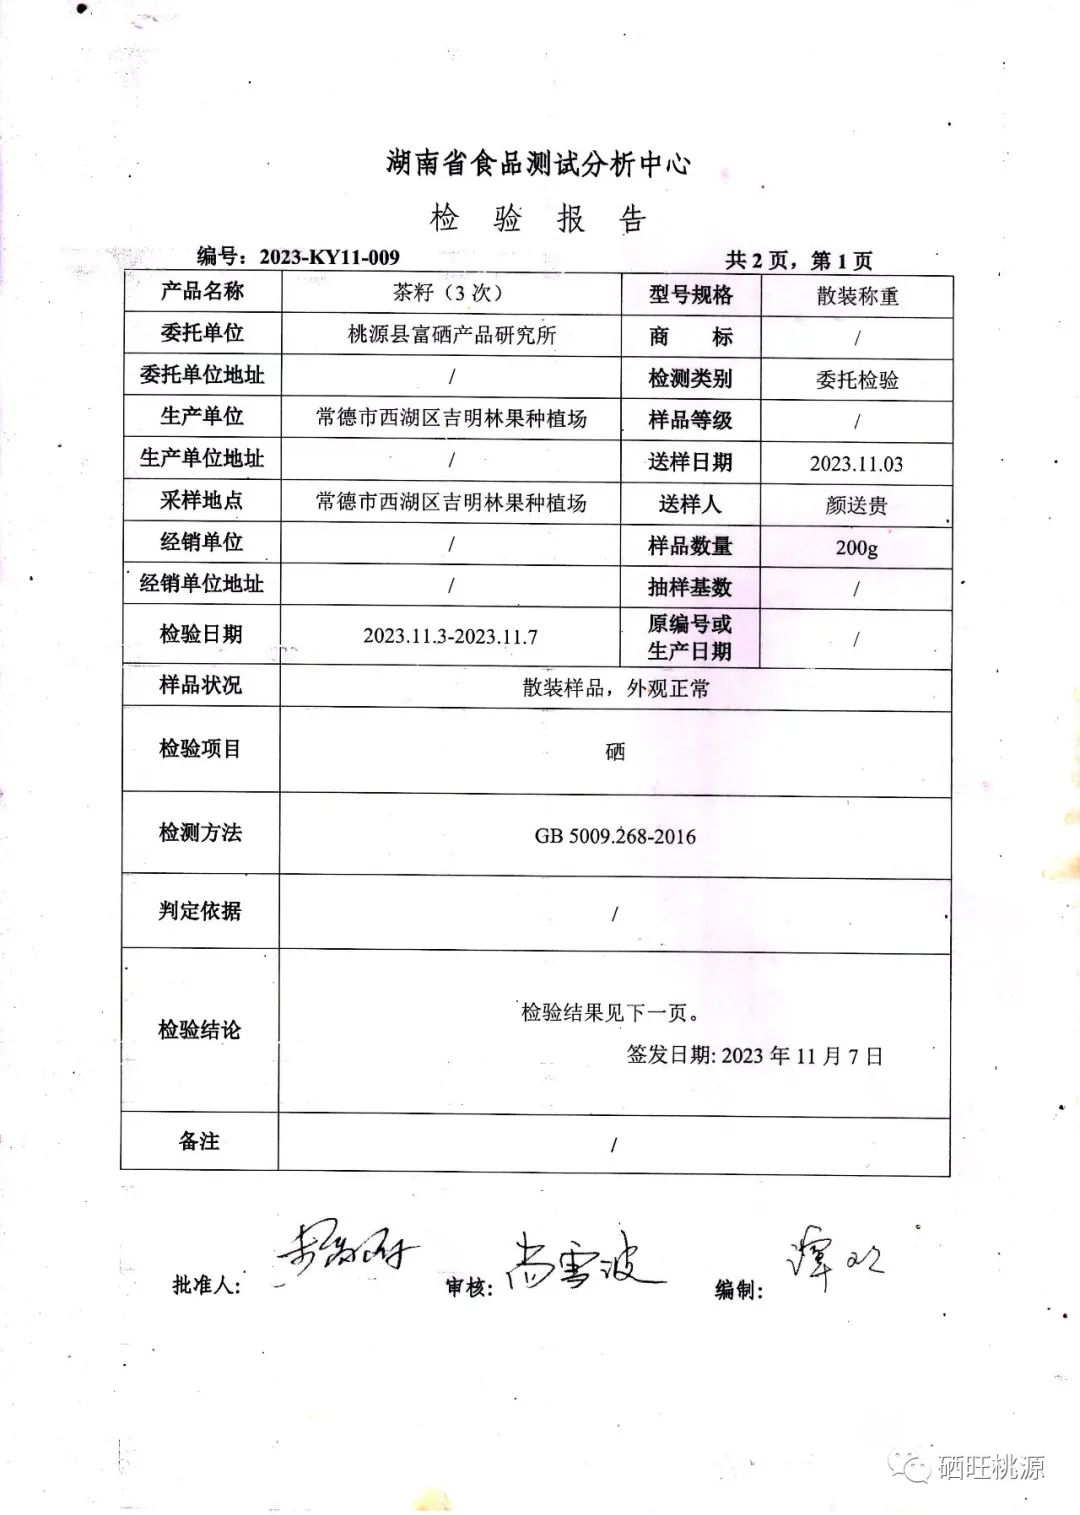 湖南省食品测试分析中心
检 验 报 告
编号：2023-KY11-009
共 2 页，第 1 页
产品名称 茶籽（3 次） 型号规格 散装称重
委托单位 桃源县富硒产品研究所 商 标 /
委托单位地址 / 检测类别 委托检验
生产单位 常德市西湖区吉明林果种植场 样品等级 /
生产单位地址 / 送样日期 2023.11.03
采样地点 常德市西湖区吉明林果种植场 送样人 颜送贵
经销单位 / 样品数量 200g
经销单位地址 / 抽样基数 /
检验日期 2023.11.3-2023.11.7 原编号或
生产日期 /
样品状况 散装样品，外观正常
检验项目 硒
检测方法 GB 5009.268-2016
判定依据 /
检验结论 检验结果见下一页。
签发日期: 2023 年 11 月 7 日
备注 /
批准人： 审核: 尚雪波 编制: 谭
硒旺桃源